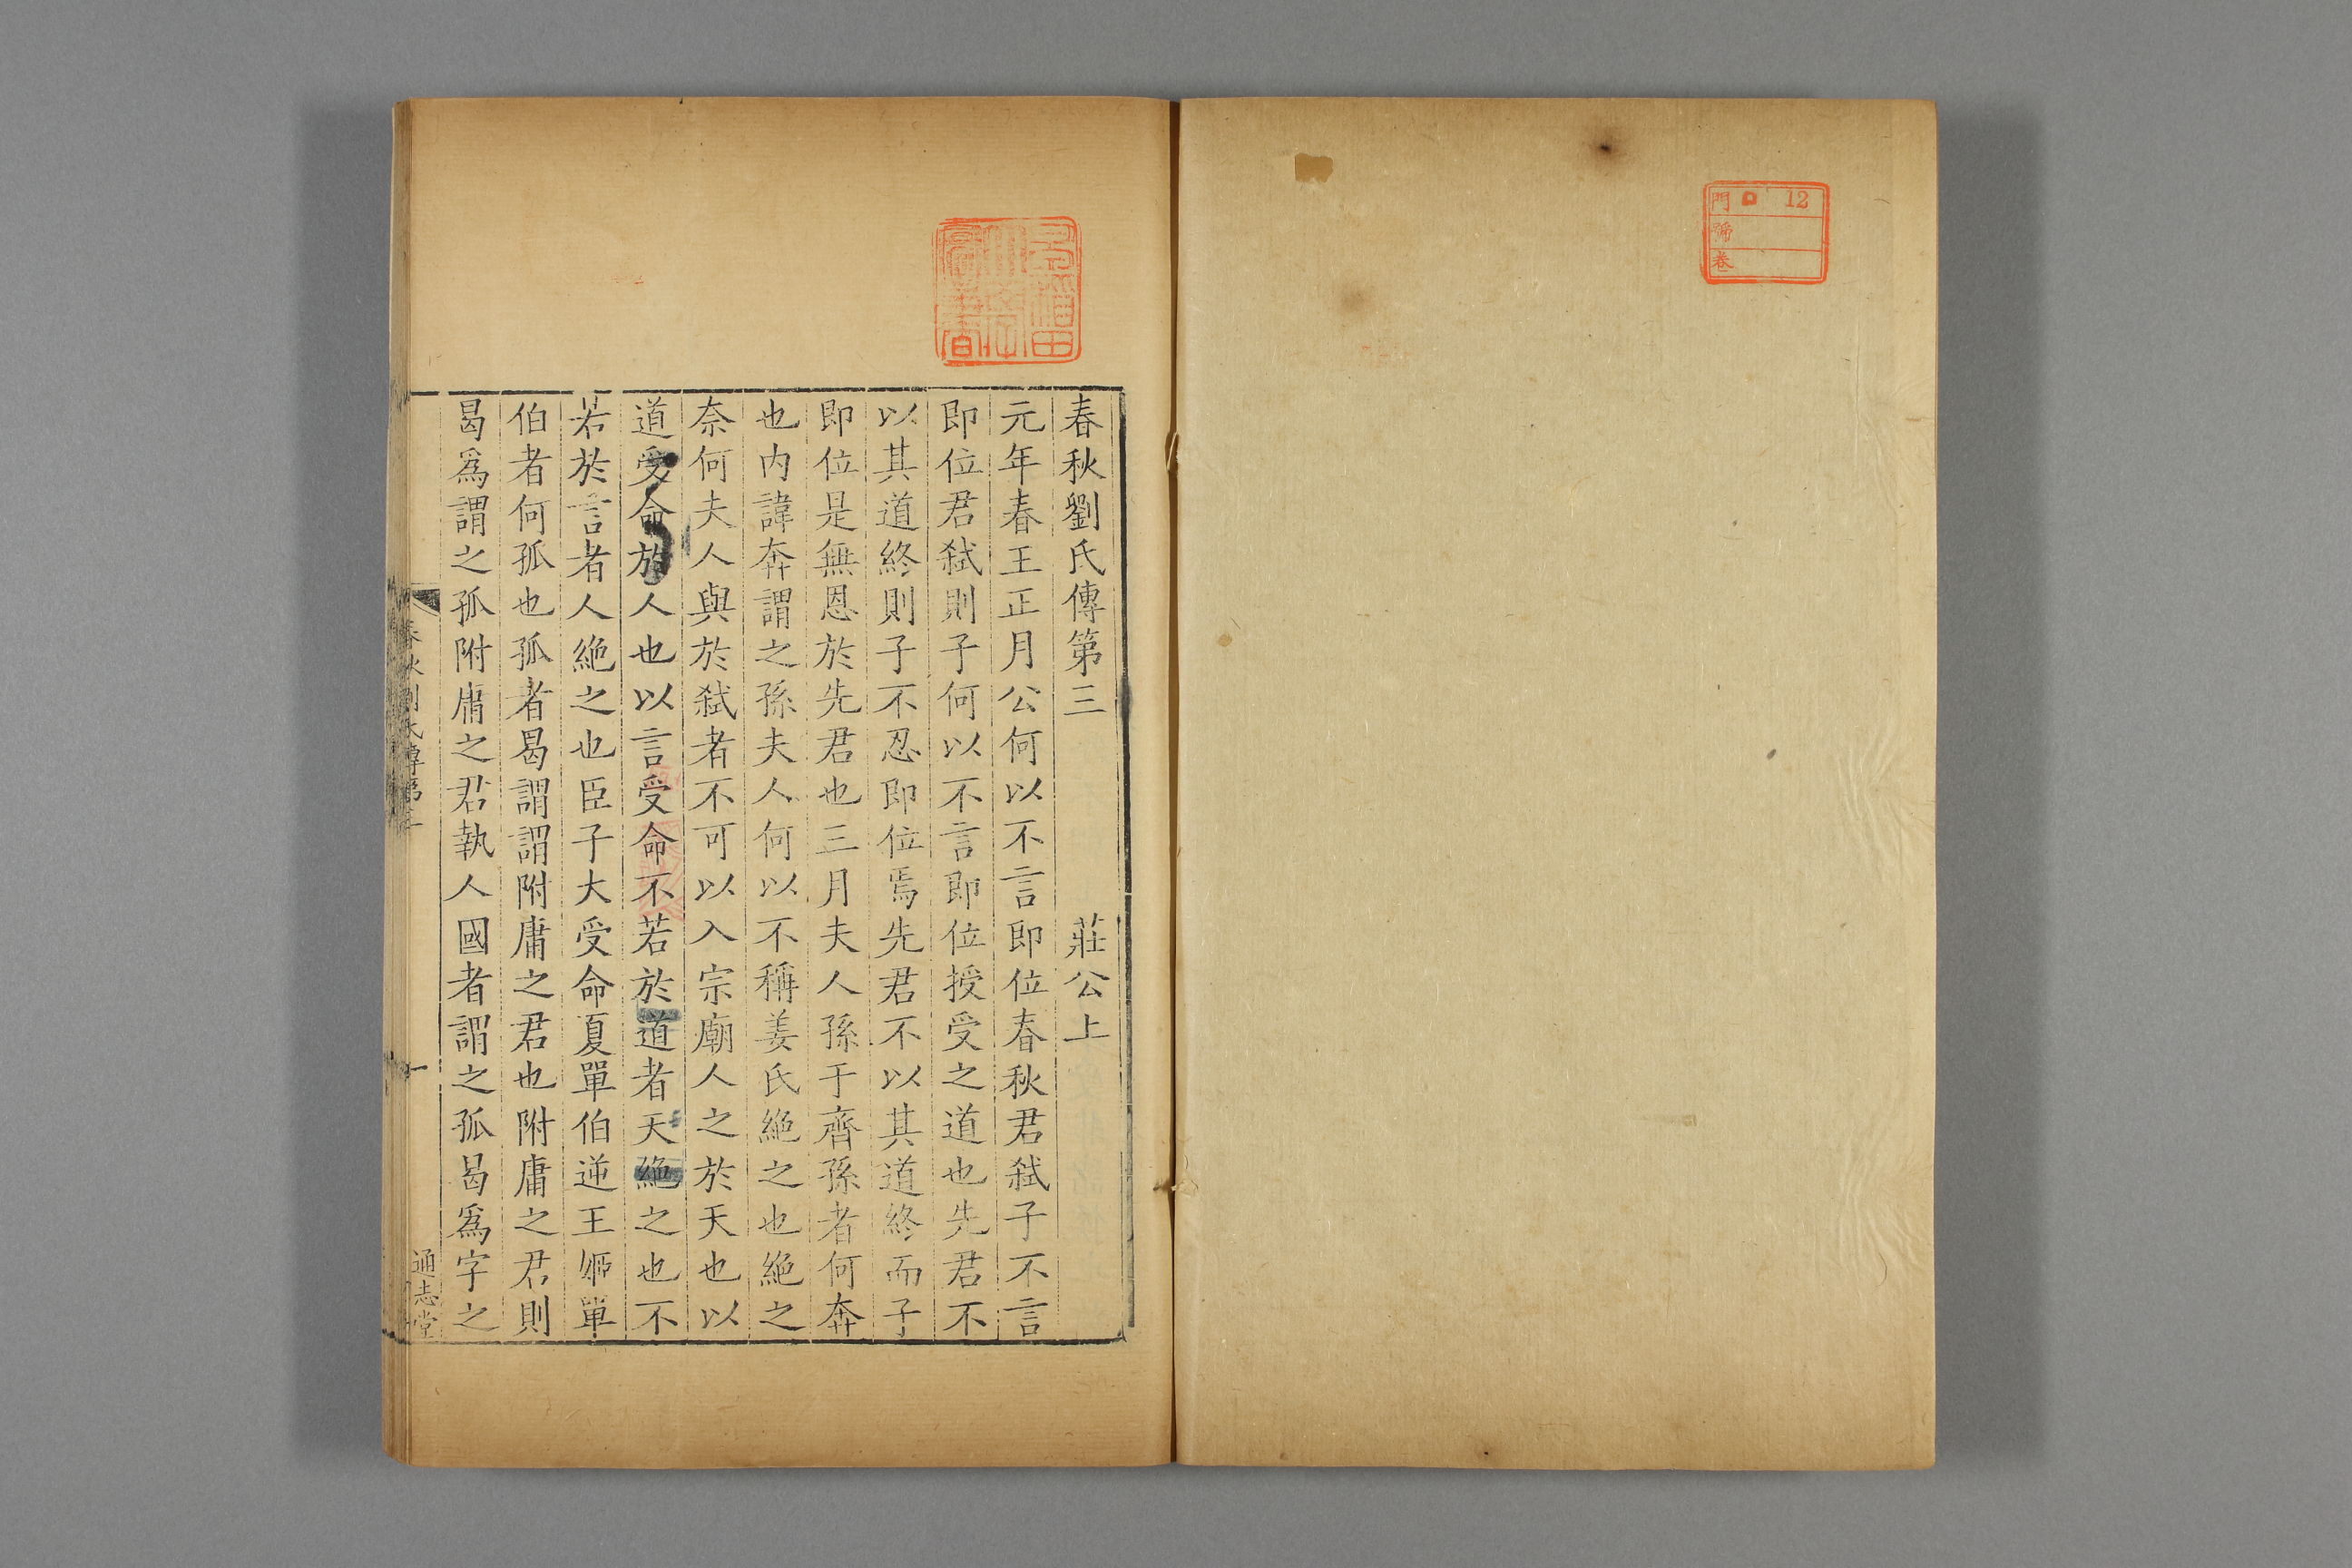 門 ロ 12
號
卷
春秋劉氏傳第三 莊公上
元年春王正月公何以不言即位春秋君弑子不言
即位君弑則子何以不言即位授受之道也先君不
以其道終則子不忍即位焉先君不以其道終而子
即位是無恩於先君也三月夫人孫于齊孫者何奔
也内諱奔謂之孫夫人何以不稱姜氏絶之也絶之
奈何夫人與於弑者不可以入宗廟人之於天也以
道受命於人也以言受命不若於道者天絶之也不
若於言者人絶之也臣子大受命夏單伯逆王姬單
伯者何孤也孤者曷謂謂附庸之君也附庸之君則
曷爲謂之孤附庸之君執人國者謂之孤曷爲字之
春秋劉氏傳第三
一
通志堂